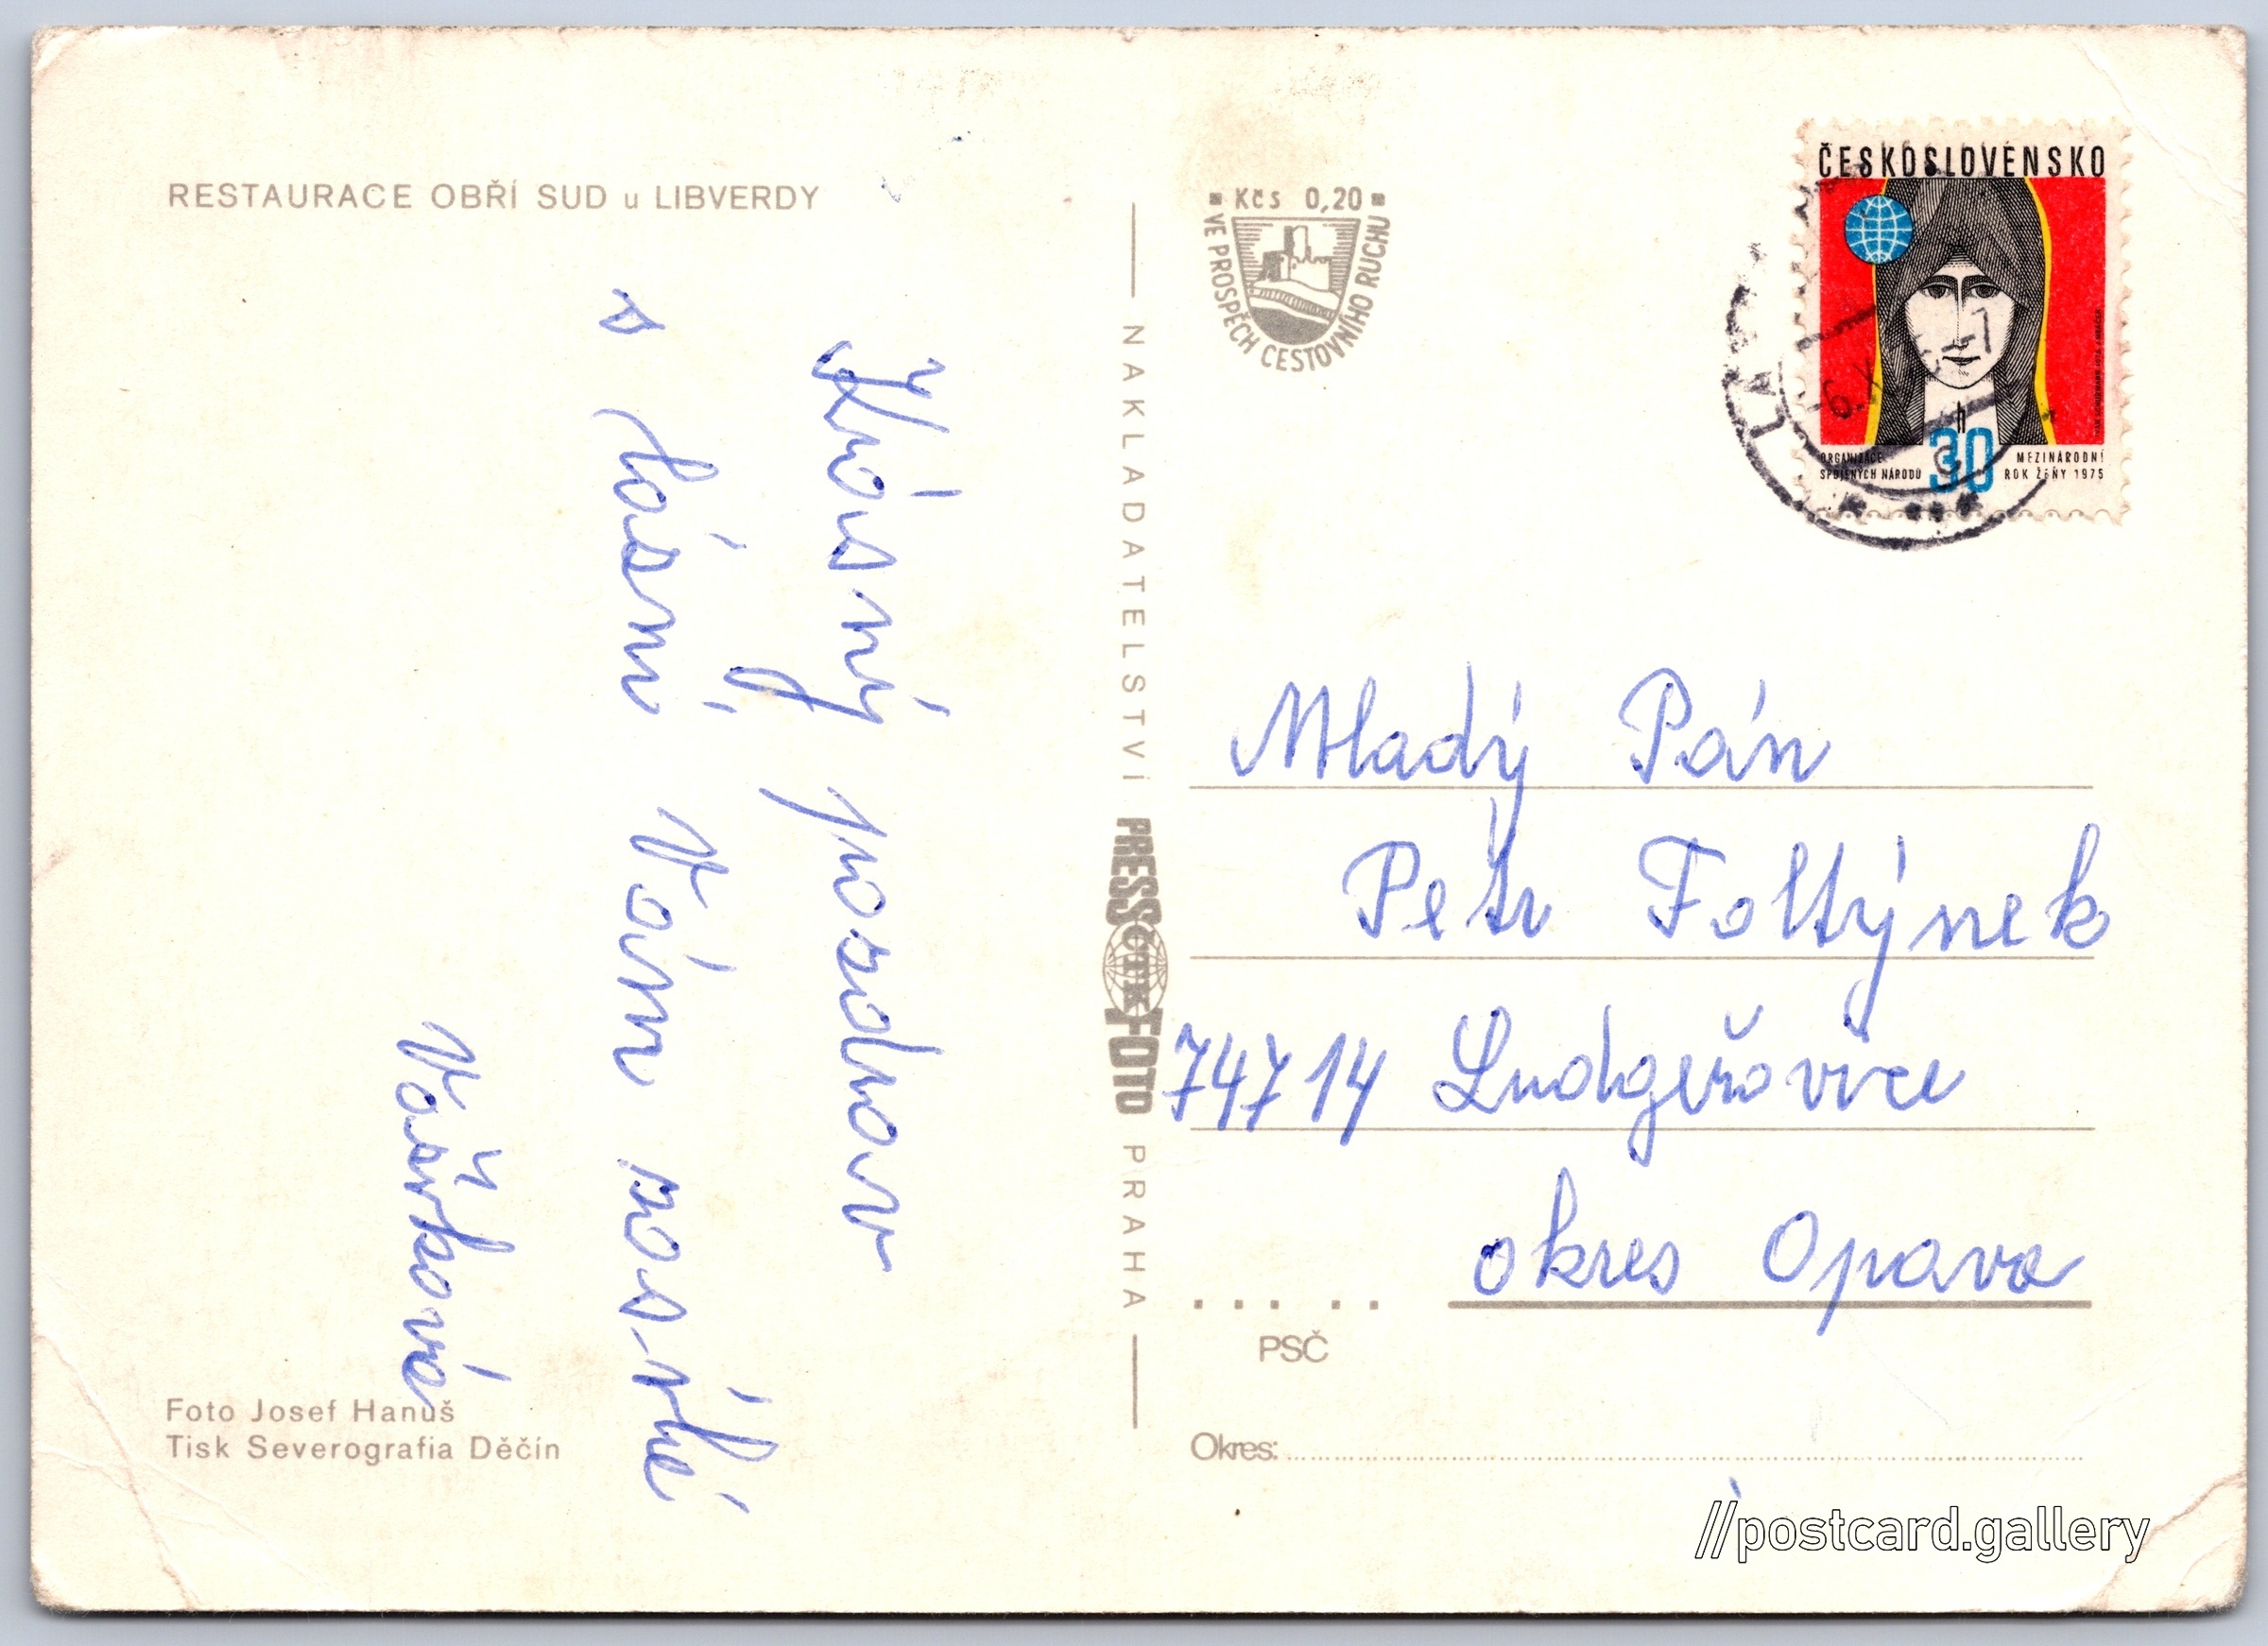 RESTAURACE OBŘÍ SUD u LIBVERDY
Krásný pozdrav
s Lázní Vám
Vašková
Foto Josef Hanuš
Tisk Severografia Děčín
NAKLADATELSTVÍ PRESSFOTO PRAHA
ČTK
Kčs 0,20
VE PROSPĚCH CESTOVNÍHO RUCHU
ČESKOSLOVENSKO
30 h
ORGANIZACE
SPOJENÝCH NÁRODŮ
MEZINÁRODNÍ
ROK ŽENY 1975
Mladý Pán
Petr Foltýnek
74714 Ludgeřovice
okres Opava
PSČ
Okres:
//postcard.gallery